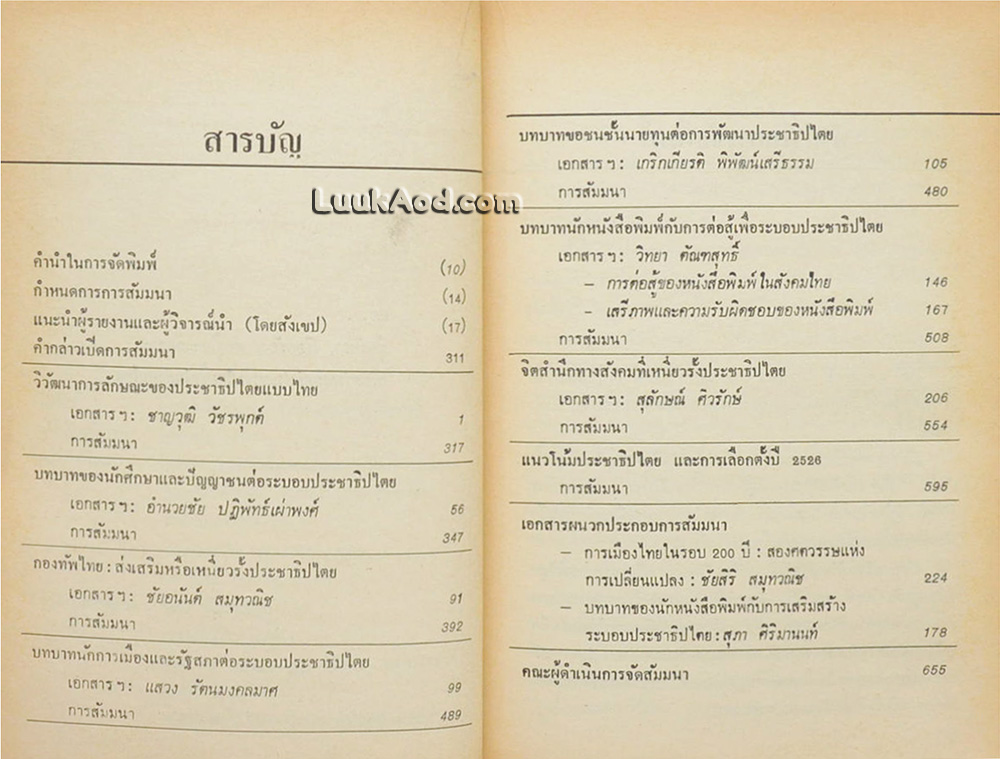 สารบัญ
LuukAod.com
คำนำในการจัดพิมพ์ (10)
กำหนดการการสัมมนา (14)
แนะนำผู้รายงานและผู้วิจารณ์นำ (โดยสังเขป) (17)
คำกล่าวเปิดการสัมมนา 311
วิวัฒนาการลักษณะของประชาธิปไตยแบบไทย
เอกสาร ฯ : ชาญวุฒิ วัชรพุกก์ 1
การสัมมนา 317
บทบาทของนักศึกษาและปัญญาชนต่อระบอบประชาธิปไตย
เอกสาร ฯ : อำนวยชัย ปฏิพัทธ์เผ่าพงศ์ 56
การสัมมนา 347
กองทัพไทย : ส่งเสริมหรือเหนี่ยวรั้งประชาธิปไตย
เอกสาร ฯ : ชัยอนันต์ สมุทวณิช 91
การสัมมนา 392
บทบาทนักการเมืองและรัฐสภาต่อระบอบประชาธิปไตย
เอกสาร ฯ : แสวง รัตนมงคลมาศ 99
การสัมมนา 489
บทบาทขอชนชั้นนายทุนต่อการพัฒนาประชาธิปไตย
เอกสาร ฯ : เกริกเกียรติ พิพัฒน์เสรีธรรม 105
การสัมมนา 480
บทบาทนักหนังสือพิมพ์กับการต่อสู้เพื่อระบอบประชาธิปไตย
เอกสาร ฯ : วิทยา ตัณฑสุทธิ์
– การต่อสู้ของหนังสือพิมพ์ในสังคมไทย 146
– เสรีภาพและความรับผิดชอบของหนังสือพิมพ์ 167
การสัมมนา 508
จิตสำนึกทางสังคมที่เหนี่ยวรั้งประชาธิปไตย
เอกสาร ฯ : สุลักษณ์ ศิวรักษ์ 206
การสัมมนา 554
แนวโน้มประชาธิปไตย และการเลือกตั้งปี 2526
การสัมมนา 595
เอกสารผนวกประกอบการสัมมนา
– การเมืองไทยในรอบ 200 ปี : สองศตวรรษแห่ง
การเปลี่ยนแปลง : ชัยสิริ สมุทวณิช 224
– บทบาทของนักหนังสือพิมพ์กับการเสริมสร้าง
ระบอบประชาธิปไตย : สุภา ศิริมานนท์ 178
คณะผู้ดำเนินการจัดสัมมนา 655